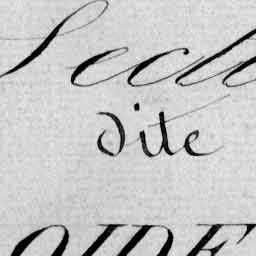 Secti
dite
OIDE